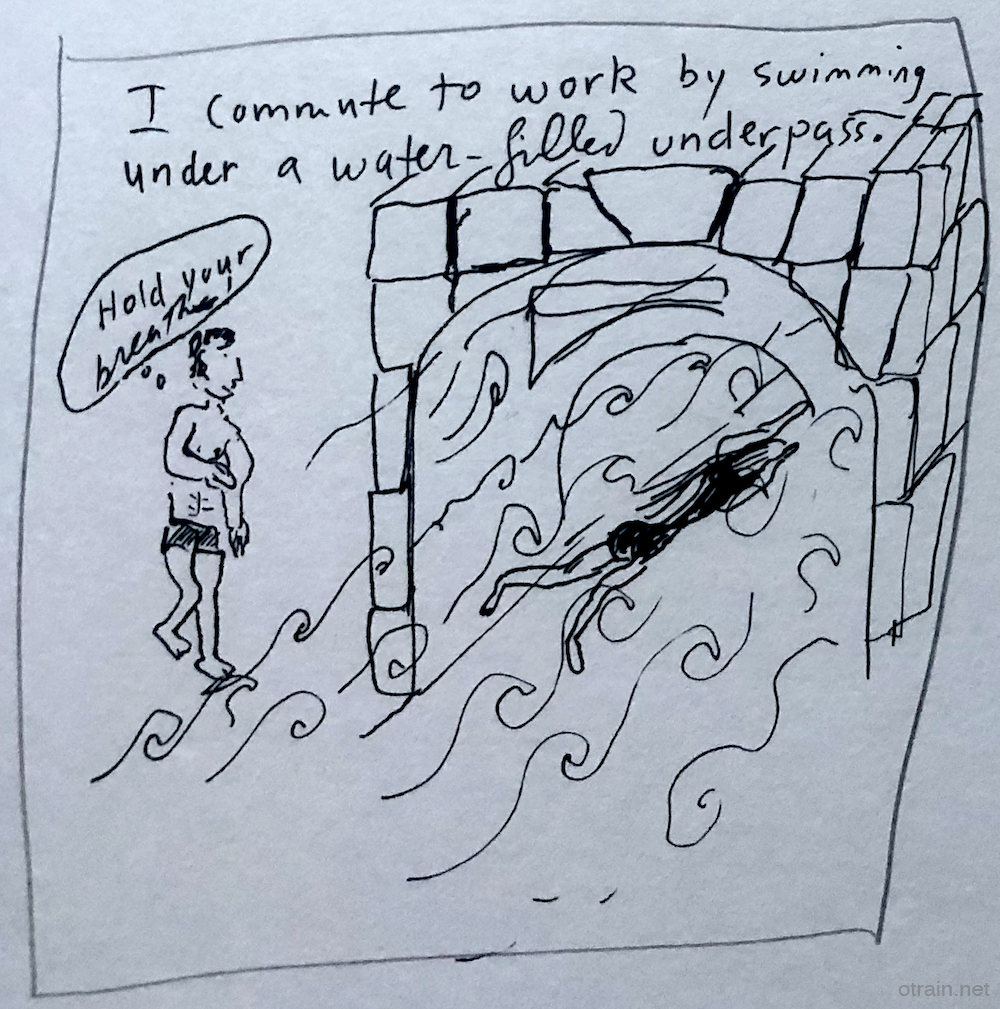 I commute to work by swimming
under a water-filled underpass.
Hold your
breath!
otrain.net